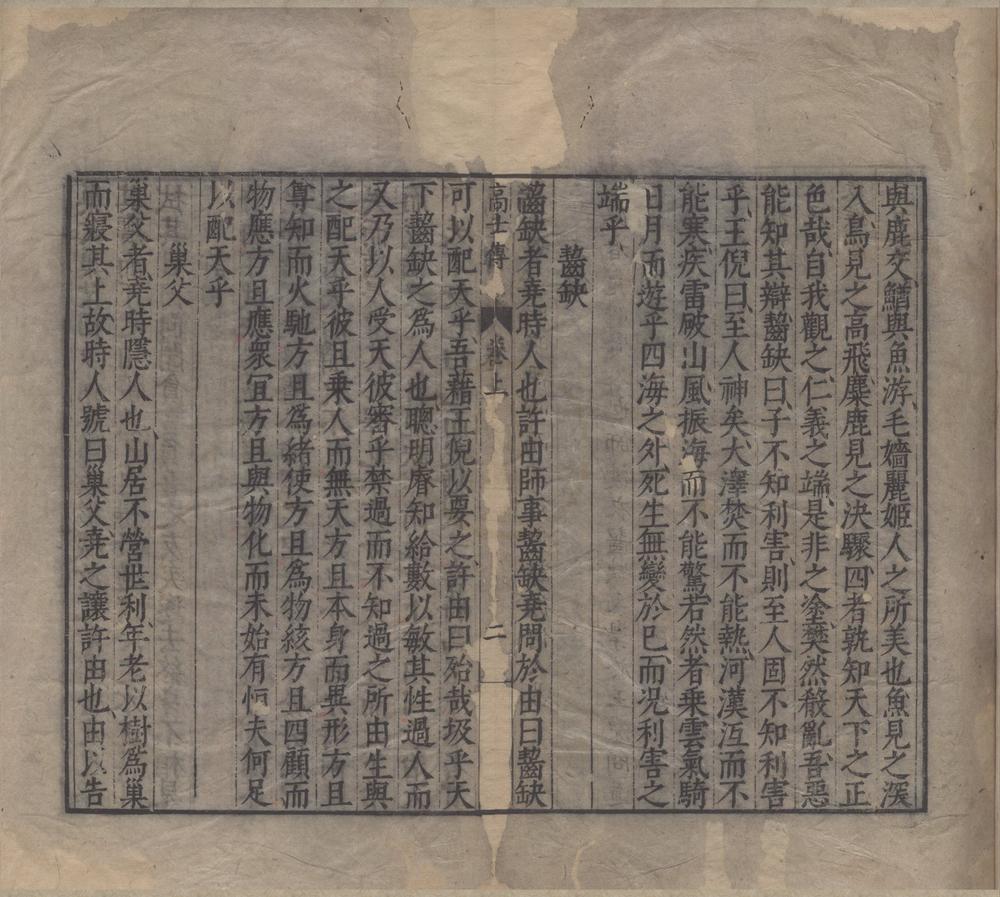 與鹿交鰌與魚游毛嬙麗姬人之所美也魚見之深
入鳥見之高飛麋鹿見之決驟四者孰知天下之正
色哉自我觀之仁義之端是非之塗樊然殽亂吾惡
能知其辯齧缺曰子不知利害則至人固不知利害
乎王倪曰至人神矣大澤焚而不能熱河漢沍而不
能寒疾雷破山風振海而不能驚若然者乗雲氣騎
日月而遊乎四海之外死生無變於已而况利害之
端乎
齧缺
齧缺者堯時人也許由師事齧缺堯問於由曰齧缺
高士傳 卷上 二
可以配天乎吾藉王倪以要之許由曰殆哉圾乎天
下齧缺之爲人也聰明睿知給數以敏其性過人而
又乃以人受天彼審乎禁過而不知過之所由生與
之配天乎彼且乗人而無天方且本身而異形方且
尊知而火馳方且爲緒使方且爲物絯方且四顧而
物應方且應衆宜方且與物化而未始有恒夫何足
以配天乎
巢父
巢父者堯時隱人也山居不營世利年老以樹爲巢
而寢其上故時人號曰巢父堯之讓許由也由以告